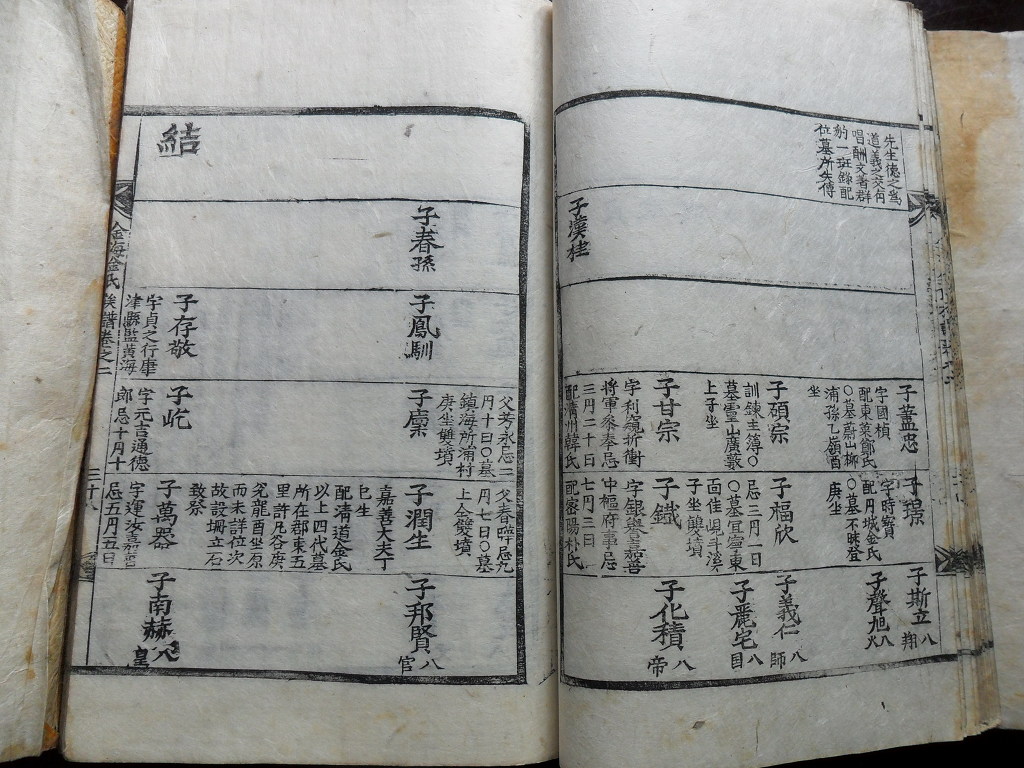 先生德之爲
道義之交有
唱酬文著群
豹一斑錄配
位墓所失傳
子漢桂
子蓋忠
字國楨
配東萊鄭氏
〇墓蔚山柳
浦孫乙嶺酉
坐
子碩宗
訓鍊主簿〇
墓雲山廣藪
上子坐
子甘宗
字利窺折衝
將軍參奉忌
三月二十日
配淸州韓氏
子璟
字時寶
配月城金氏
〇墓不昧登
庚坐
子福欣
忌三月一日
〇墓冝寧東
面佳峴斗溪
子坐雙墳
子鐵
字銀譽嘉善
中樞府事忌
七月三日
配密陽朴氏
子斯立
八翔
子聲旭
八火
子義仁
八師
子麗宅
八目
子化積
八帝
結
子春孫
子鳳馴
子存敬
字貞之行康
津縣監黃海
父芳永忌二
月十日〇墓
鎭海所浦村
庚坐雙墳
子廩
子屹
字元吉通德
郎忌十月十
父春曄忌九
月七日〇墓
上仝雙墳
子潤生
嘉善大夫丁
巳生
配淸道金氏
以上四代墓
所在郡東五
里許凡谷庚
兌龍酉坐原
而未詳位次
故設壇立石
致祭
子萬器
字運汝嘉善
忌五月五日
子邦賢
八官
子南赫
八皇
金海金氏
族譜卷之二
三十八